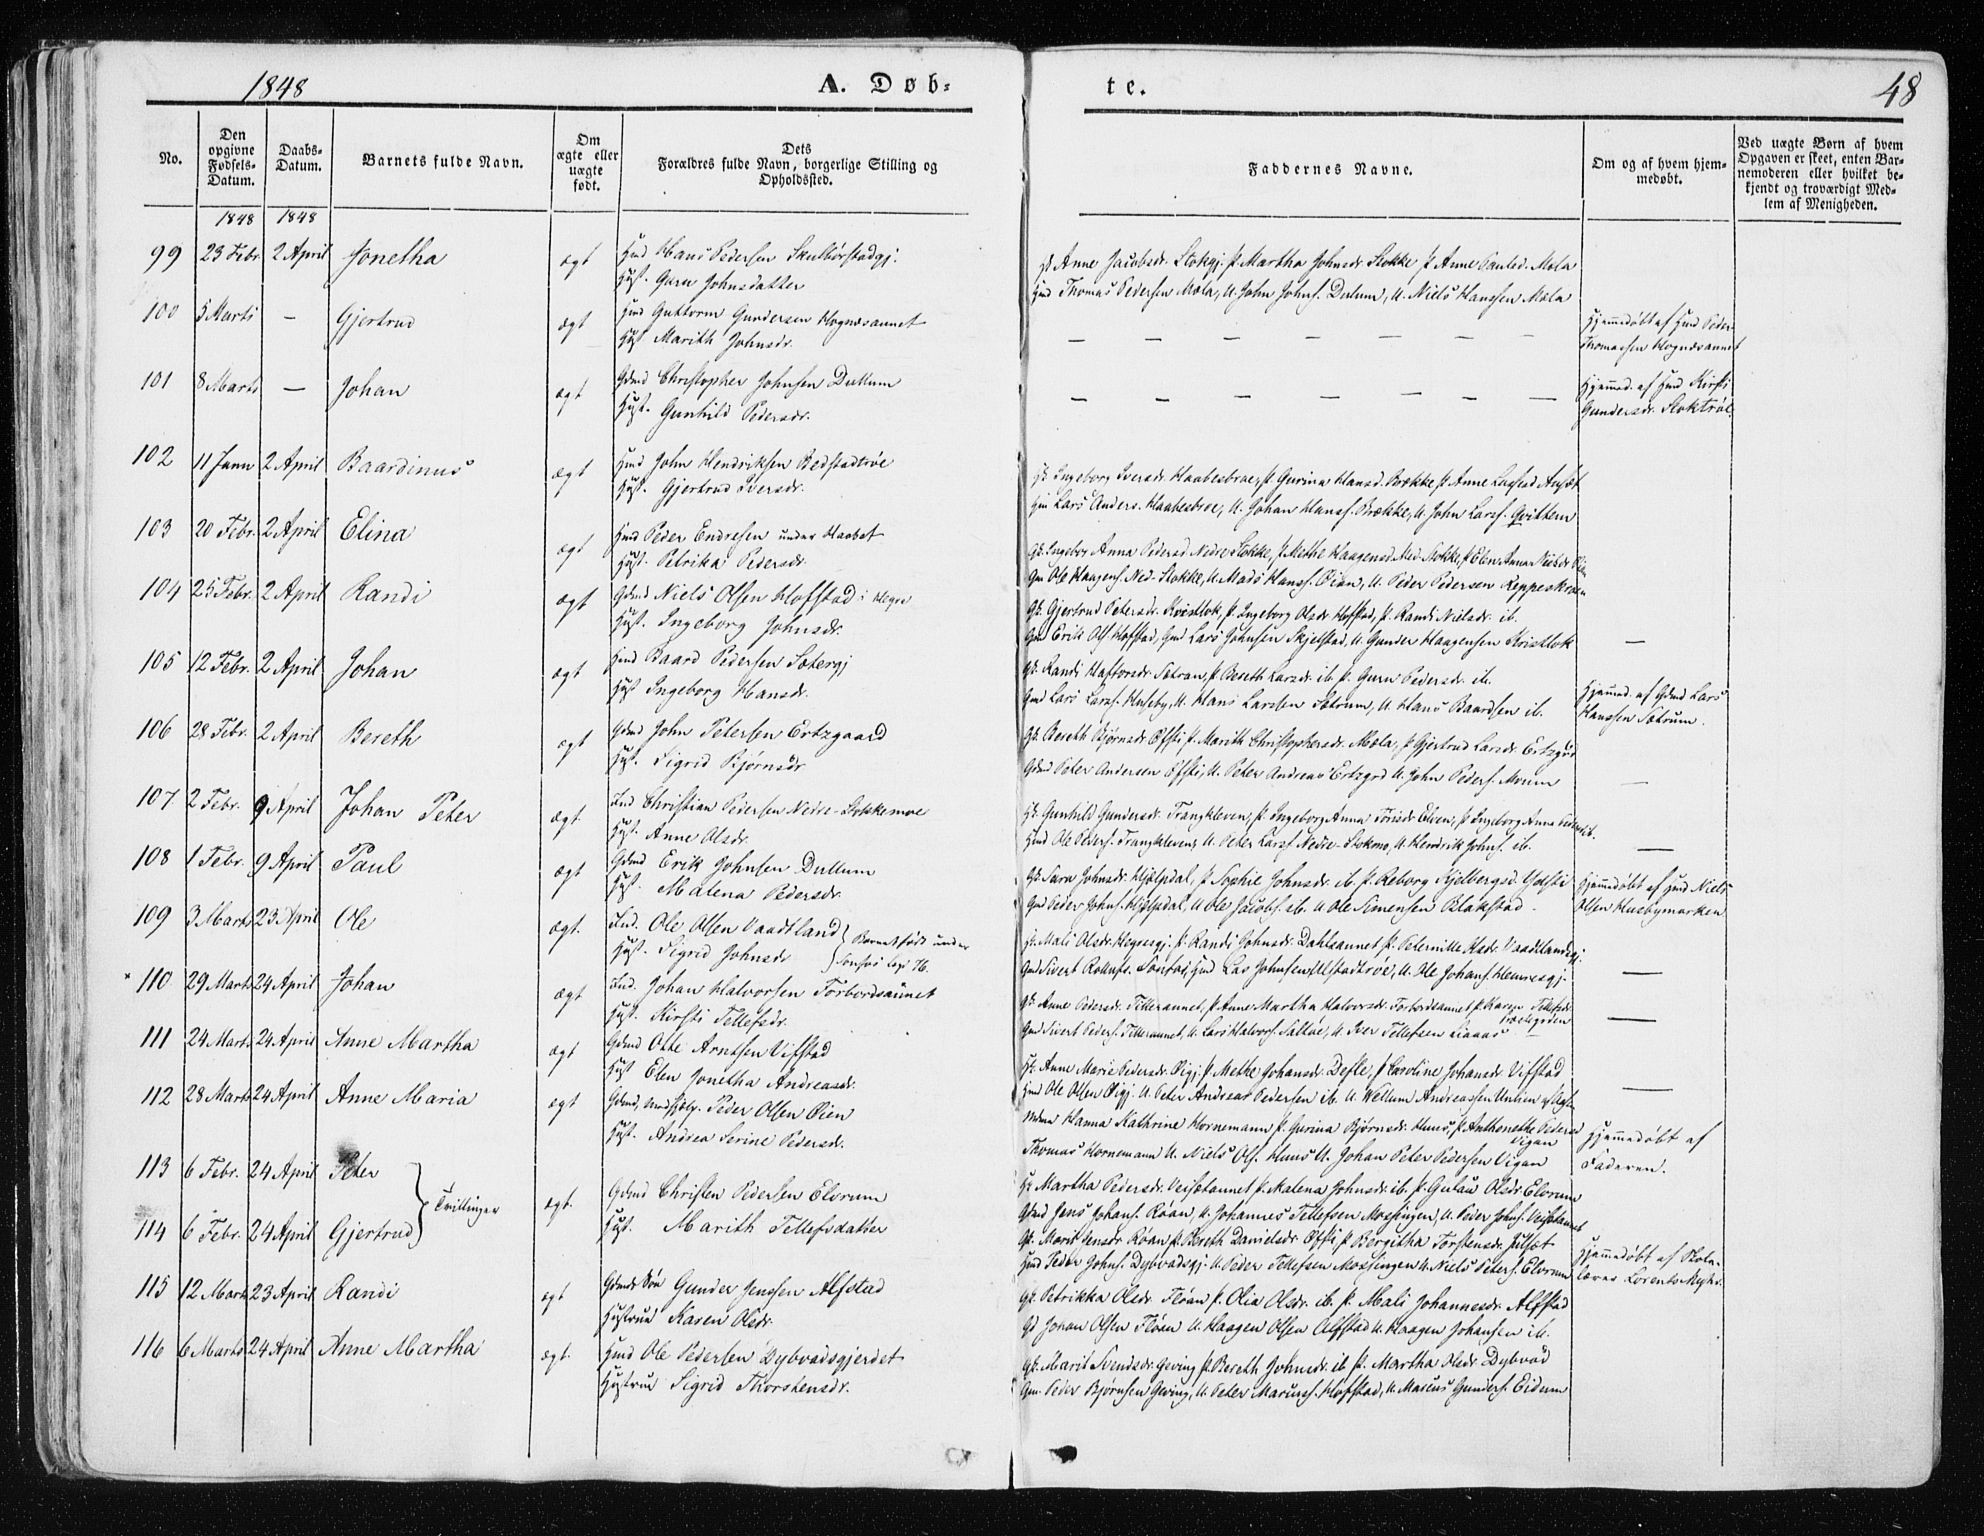 1848
A. Døb-
te.
48
No.
Den opgivne Fødsels-Datum.
Daabs-Datum.
Barnets fulde Navn.
Om ægte eller uægte født.
Dets Forældres fulde Navn, borgerlige Stilling og Opholdssted.
Faddernes Navne.
Om og af hvem hjem-medøbt.
Ved uægte Børn af hvem Opgaven er skeet, enten Bar-nemoderen eller hvilket be-kjendt og troværdigt Med-lem af Menigheden.
1848 1848
99 23 Febr. 2 April Jonetha ægt Hmd Hans Pedersen Skulbørstadgj.
Hust. Guru Johnsdatter
Anne Jacobsdr. Stokgj. P. Martha Johnsdr Stokke P. Anne Paulsd. Mæla
Hmd Thomas Pedersen Mæla, U. John Johns. Dulum, U. Niels Hanssen Mæla
100 5 Marts — Gjertrud ægt Hmd Guttorm Gundersen Hognæsaunet
Hust Marith Johnsdr.
— — — — — — —
Hjemmedøbt af Hmd Peder
Thomassen Hognæsaunet
101 8 Marts — Johan ægt Gdmd Christopher Johnsen Dullum
Hust. Gunhild Pedersdr.
— — — — — — —
Hjemmed. af Hmd Kirsti
Gundersdr. Stoktrøe
102 11 Janu 2 April Baardinus ægt Hmd John Hendriksen Redstadtrøe
Hust. Gjertrud Iversdr.
Ingeborg Iversdr. Haabesbroe, P. Gurina Hansd. Brække P. Anne
Lars Anders. Haabesbroe, U. Johan Hans. Brække, U. John Lars. Qvittem
103 20 Febr. 2 April Elina ægt Hmd Peder Endresen under Haabet
Hust. Petrika Pedersdr.
Anna Pedersd Nedre Stokke, P. Methe Haagensd. Ned. Stokke, P. Elen Anna
Gm Ole Haagens. Ned. Stokke, U. Mads Hans. Øian, U. Peder Pedersen Reppeskroen
104 25 Febr. 2 April Randi ægt Gdmd Niels Olsen Hofstad i Hegre
Hust. Ingeborg Johnsdr.
Gk. Gjertrud Petersdr. Kvistlok, P. Ingeborg Olsdr Hofstad, P. Randi Nielsdr. ib.
Gm Erik Ols Hofstad, Gmd Lars Johnsen Skjelstad, U. Gunder Haagensen Kvistlok
—
105 12 Febr. 2 April Johan ægt Hmd Baard Pedersen Sætergj
Hust Ingeborg Hansdr.
Gk. Randi Haftorsdr. Sætran, P. Bereth Larsdr. ib P. Guru Pedersdr. ib.
Gmd Lars Lars. Huseby, U. Hans Larssen Sætrum, U. Hans Baardsen ib.
Hjemmed. af Gdmd Lars
Hanssen Sætrum.
106 28 Febr. 2 April Bereth ægt Gdmd John Petersen Ertzgaard
Hust. Sigrid Bjørnsdr
Gk. Bereth Bjørnsdr Øfsti P. Marith Christophersdr. Mæla, P. Gjertrud Larsdr. Ertzgrd
Gdmd Peter Andersen Øfsti, U. Peter Andreas Ertzgrd U. John Peders. Moum
—
107 2 Febr. 9 April Johan Peter ægt Ind Christian Pedersen Nedre-Stokkemoe
Hust. Anne Olsdr.
Gunhild Gundersdr. Trangkleven, P. Ingeborg Anna Elven, P. Ingeborg Anna
Hmd Ole Peders. Trangkleven, U. Peter Lars. Nedre-Stokmo, U. Hendrik Johns. ib.
—
108 1 Febr. 9 April Paul ægt Gdmd Erik Johnsen Dullum
Hust. Malena Pedersdr.
Gk. Sara Johnsdr. Hjelpdal, P. Sophie Johnsdr. ib P. Reborg Kjelbergsd.
Gmd Peder Johns. Hjelpsdal, U Ole Jacobs. ib. U Ole Simensen Blakstad.
Hjemmedøbt af Hmd Niels
Olsen Husbymarken
109 3 Marts 23. April Ole ægt. Ind. Ole Olsen Vaadtland } Barnet født under
Hust. Sigrid Johnsdr
Mali Olsdr. P. Randi Johnsdr. Dahlsaunet P. Peternille Olsdr. Vaadtland
Gmd Sivert U. Ole Johans.
—
110 29 Marts 24 April Johan ægt Ind. Johan Halvorsen Torbordsaunet
Hust. Kirsti Tellefsdr.
Gk. Anne Pedersdr. Tilleraunet, P. Anne Martha Halvorsdr. Torbordsaunet P. Karen Tellefsdr.
Gmd Sivert Peders. Tilleraunet, U. Lars Halvors. U. Iver Tellefsen
—
111 24 Marts 24 April Anne Martha ægt Gdmd Ole Arntsen Vifstad
Hust Elen Jonetha Andreasdr.
Anne Marie Pedersdr. P. Methe Johansd. P. Caroline Johansdr Vifstad
Hmd Ole Olsen U. Peter Andreas Pedersen ib. U. Wellum Andreassen
—
112 28 Marts 24 April Anne Maria ægt Peder Olsen Øien
Hust. Andrea Serine Pedersdr.
Hanna Kathrine Hornemann P. Gurina Bjørnsdr. Huus, P. Anthonette Pedersd
Vigan
Thomas Hornemann U. Niels Ols. Huus U. Johan Peter Pedersen Vigan
Hjemmedøbt af
Faderen.
113 6 Febr. 24 April Peter
Tvillinger ægt. Gdmd Christen Pedersen Elvrum
Martha Pedersdr. P. Malena Johnsdr. ib. P. Gulau Olsdr Elvrum
Gmd Jens Johans. Røan, U. Johannes Tellefsen Mossingen, U. Peder Johns.
114 6 Febr. 24 April Gjertrud
Hust. Marith Tellefsdatter
Røan P. Bereth Danielsdr. Øfsti P. Bergitha Torstensdr. Julset
Hmd Peder Johns. Dybvadsgj. U. Peder Tellefsen Mossingen U. Niels Peters. Elvrum
Hjemmedøbt af Skole-
lærer Lorents Myhr.
115 12 Marts 23 April Randi ægt Gdmds Søn Gunder Jenssen Alfstad
Hustrue Karen Olsdr.
Gk. Petrikka Olsdr. Fløan P. Olia Olsdr. ib. P. Mali Johannesdr. Alfstad
Johan Olsen Fløan U. Haagen Olsen Alfstad U. Haagen Johansen ib.
116 6 Marts 24 April Anne Martha ægt. Hmd Ole Pedersen Dybvadsgjerdet
Hustrue Sigrid Thorstensdr.
Gk. Marit Svendsdr. Geving P. Bereth Johnsdr. ib P. Martha Olsdr. Dybvad
Gm. Peder Bjørnsen Geving, U. Peter Marius. Hofstad, U. Marius Gunders. Eidum